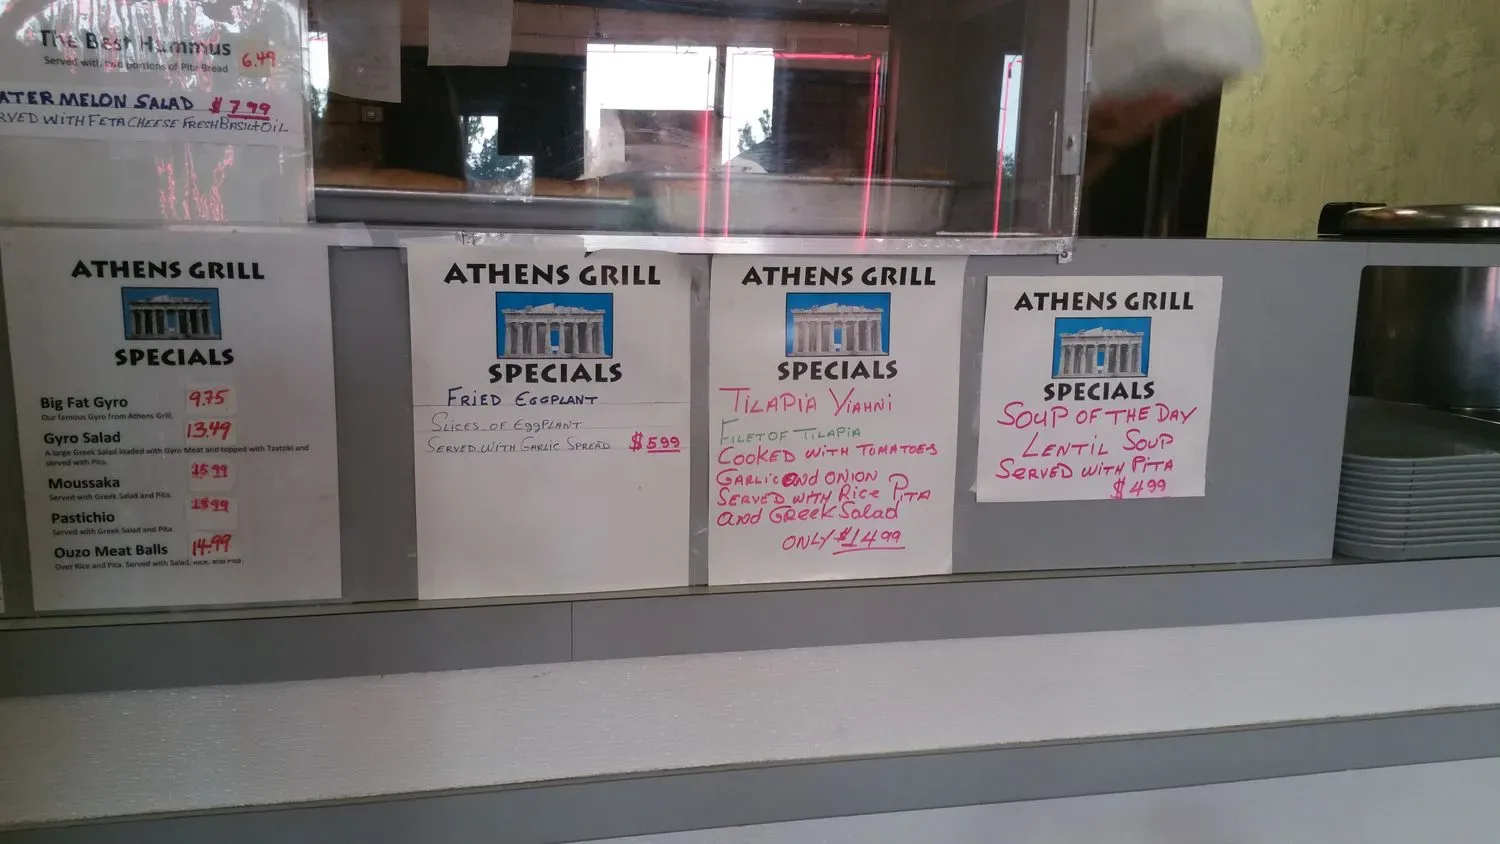 The Best Hummus 6.49
Served with two portions of Pita Bread
ATER MELON SALAD $7.99
RVED WITH FETA CHEESE FRESH BASIL+OIL
ATHENS GRILL
SPECIALS
Big Fat Gyro 9.75
Our famous Gyro from Athens Grill.
Gyro Salad 13.49
A large Greek Salad loaded with Gyro Meat and topped with Tzatziki and
served with Pita.
Moussaka 15.99
Served with Greek Salad and Pita.
Pastichio 15.99
Served with Greek Salad and Pita.
Ouzo Meat Balls 14.99
Over Rice and Pita. Served with Salad, Rice, and Pita.
ATHENS GRILL
SPECIALS
FRIED EGGPLANT
SLICES OF EGGPLANT
SERVED WITH GARLIC SPREAD $5.99
ATHENS GRILL
SPECIALS
TILAPIA YIAHNI
FILET OF TILAPIA
COOKED WITH TOMATOES
GARLIC AND ONION
SERVED WITH RICE PITA
AND GREEK SALAD
ONLY $14.99
ATHENS GRILL
SPECIALS
SOUP OF THE DAY
LENTIL SOUP
SERVED WITH PITA
$4.99